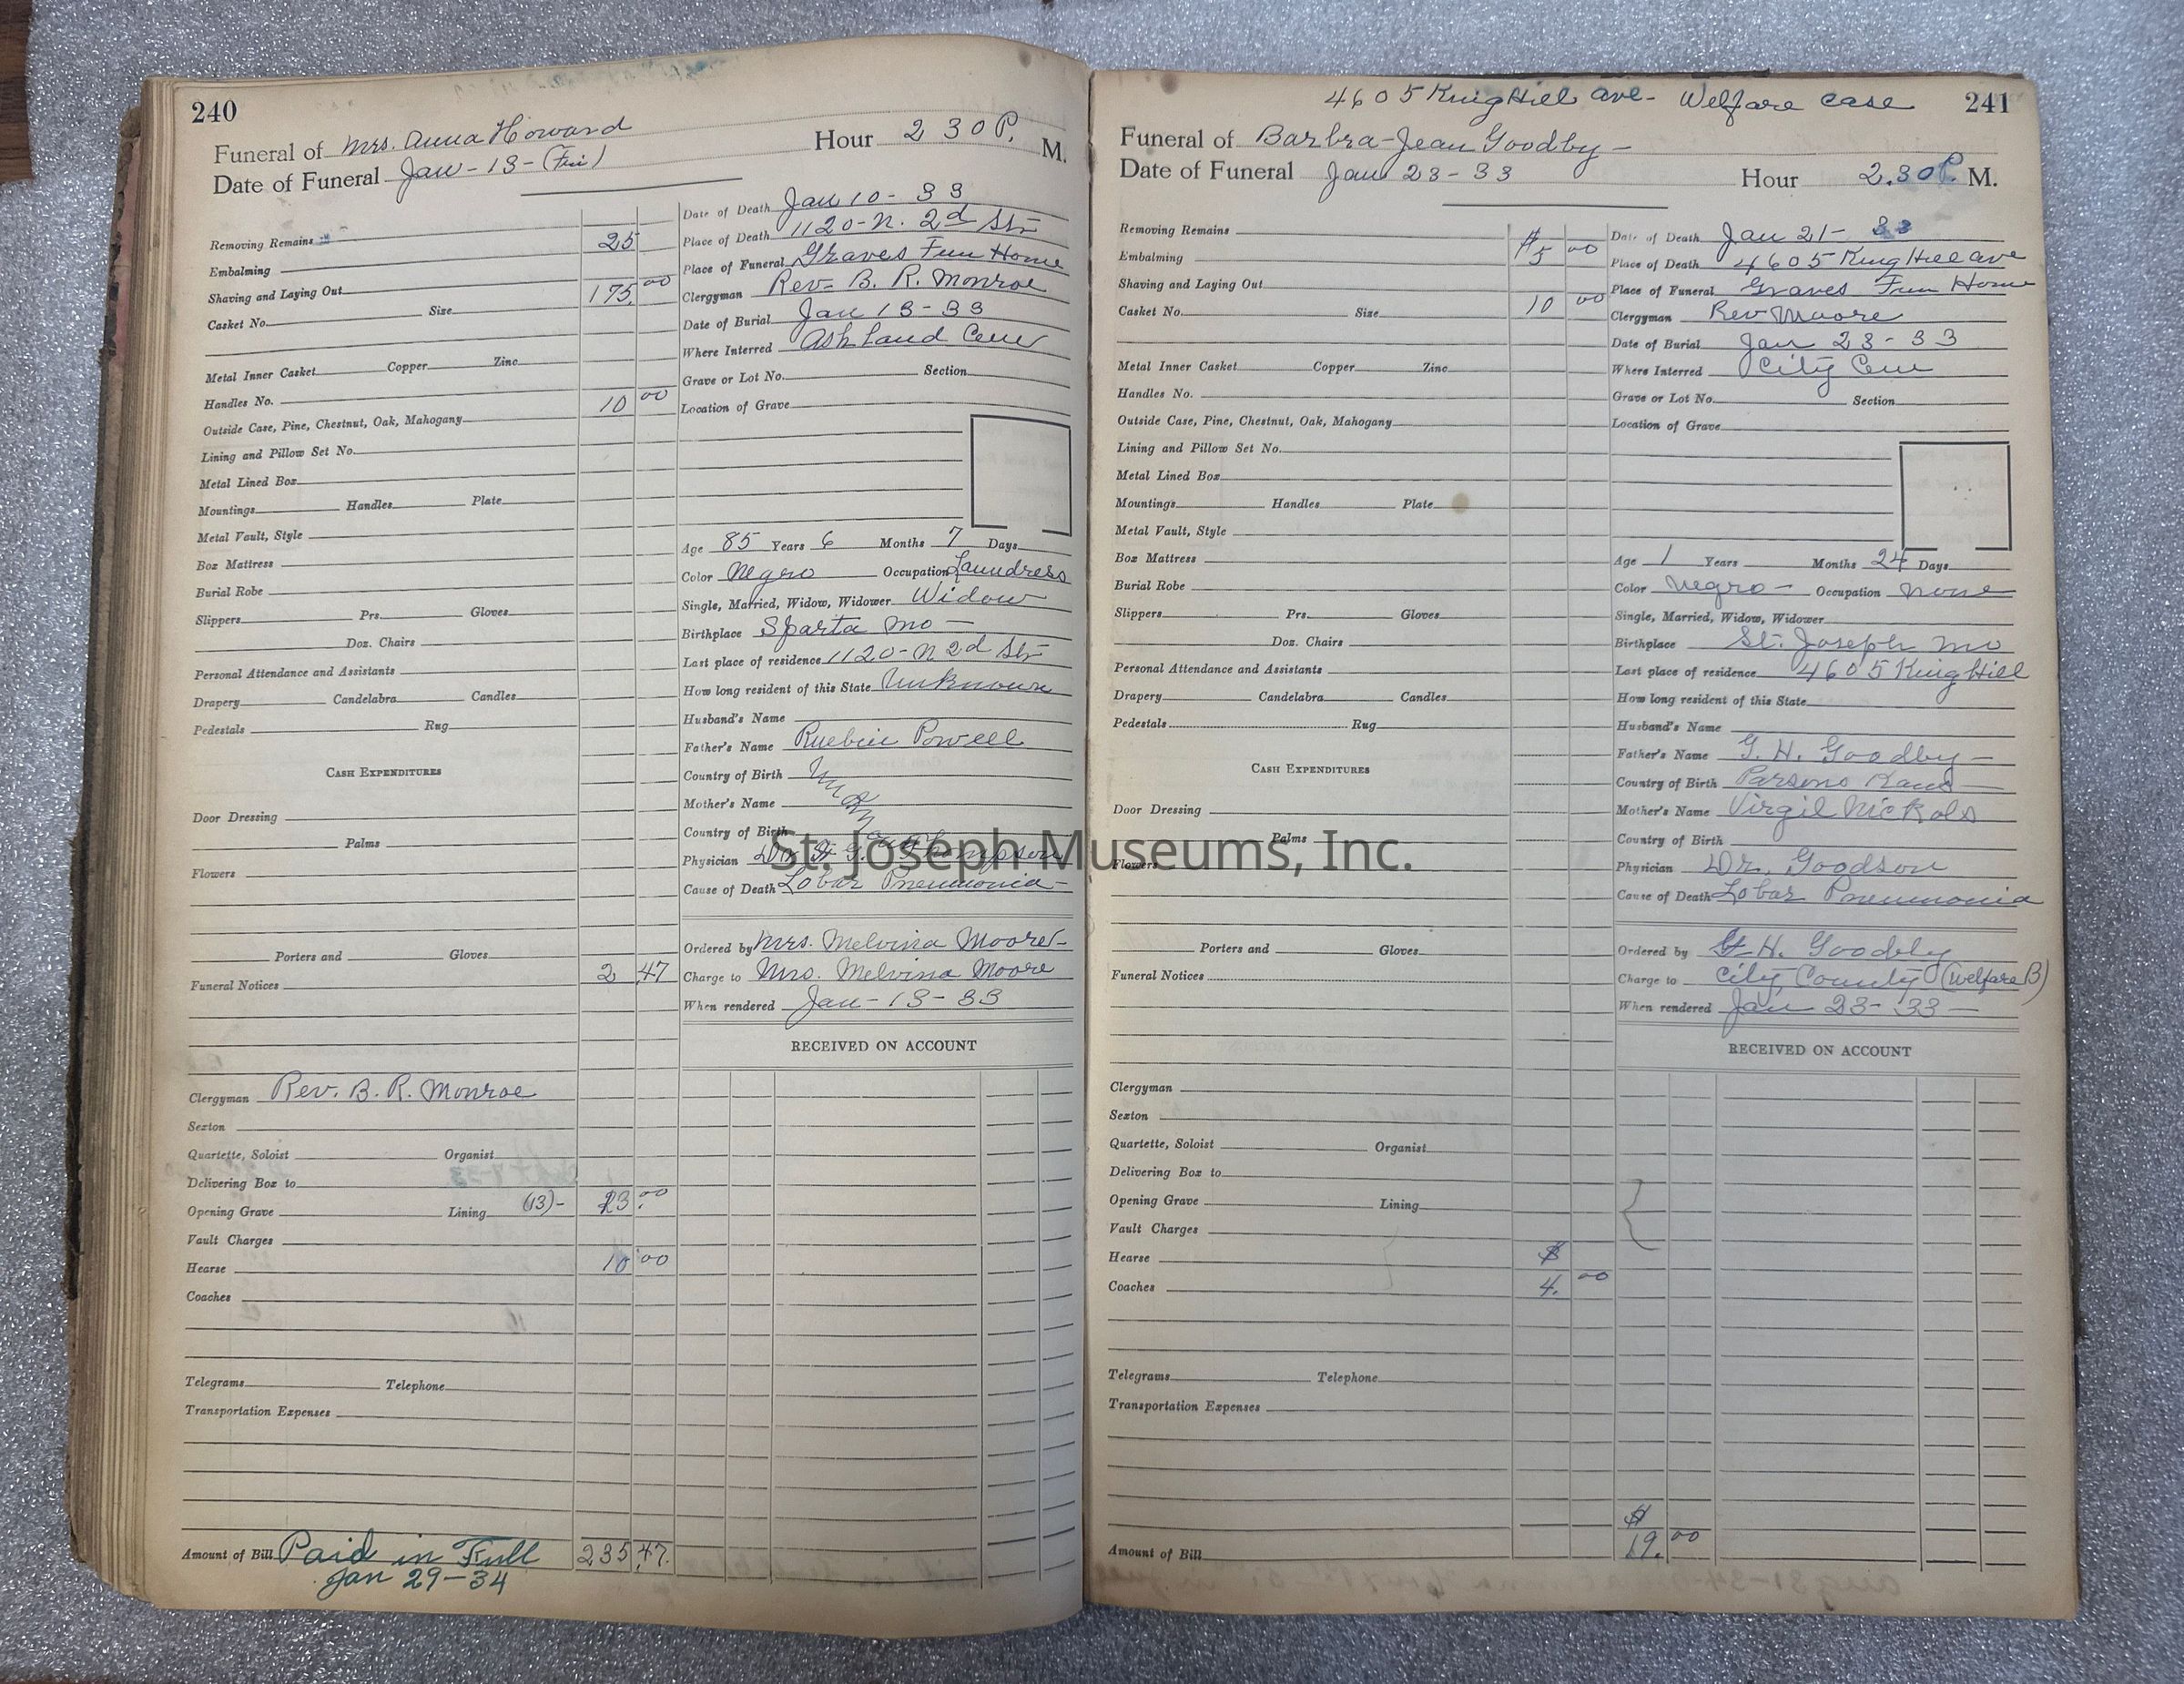 240
Funeral of Mrs. Anna Howard Hour 2 30 P. M.
Date of Funeral Jan-13-(Fri)
Removing Remains
Embalming 25
Shaving and Laying Out
Casket No. Size 175.00
Metal Inner Casket Copper Zinc
Handles No.
Outside Case, Pine, Chestnut, Oak, Mahogany 10 00
Lining and Pillow Set No.
Metal Lined Box
Mountings Handles Plate
Metal Vault, Style
Box Mattress
Burial Robe
Slippers Prs. Gloves
Doz. Chairs
Personal Attendance and Assistants
Drapery Candelabra Candles
Pedestals Rug
CASH EXPENDITURES
Door Dressing
Palms
Flowers
Porters and Gloves
Funeral Notices 2 47
Clergyman Rev. B. R. Monroe
Sexton
Quartette, Soloist Organist
Delivering Box to
Opening Grave Lining (13)- 23.00
Vault Charges
Hearse 10 00
Coaches
Telegrams Telephone
Transportation Expenses
Amount of Bill Paid in Full 235 47.
Jan 29-34
Date of Death Jan 10-33
Place of Death 1120-N. 2d St-
Place of Funeral Graves Fun Home
Clergyman Rev- B. R. Monroe
Date of Burial Jan 13-33
Where Interred Ashland Cem
Grave or Lot No. Section
Location of Grave
Age 85 Years 6 Months 7 Days
Color Negro Occupation Laundress
Single, Married, Widow, Widower Widow
Birthplace Sparta Mo-
Last place of residence 1120-N 2d St-
How long resident of this State Unknown
Husband's Name
Father's Name Ruebin Powell
Country of Birth
Mother's Name
Country of Birth
Physician Dr. Thompson
Cause of Death Lobar Pneumonia-
Ordered by Mrs. Melvina Moore-
Charge to Mrs. Melvina Moore
When rendered Jan-13-33
RECEIVED ON ACCOUNT
4605 King Hill Ave- Welfare case 241
Funeral of Barbra-Jean Goodby-
Date of Funeral Jan 23-33 Hour 2.30 P. M.
Removing Remains
Embalming $5 00
Shaving and Laying Out
Casket No. Size 10 00
Metal Inner Casket Copper Zinc
Handles No.
Outside Case, Pine, Chestnut, Oak, Mahogany
Lining and Pillow Set No.
Metal Lined Box
Mountings Handles Plate
Metal Vault, Style
Box Mattress
Burial Robe
Slippers Prs. Gloves
Doz. Chairs
Personal Attendance and Assistants
Drapery Candelabra Candles
Pedestals Rug
CASH EXPENDITURES
Door Dressing
Palms
Flowers
Porters and Gloves
Funeral Notices
Clergyman
Sexton
Quartette, Soloist Organist
Delivering Box to
Opening Grave Lining
Vault Charges
Hearse $
Coaches 4. 00
Telegrams Telephone
Transportation Expenses
Amount of Bill $19. 00
Date of Death Jan 21- 33
Place of Death 4605 King Hill ave
Place of Funeral Graves Fun Home
Clergyman Rev Moore
Date of Burial Jan 23-33
Where Interred City Cem
Grave or Lot No. Section
Location of Grave
Age 1 Years Months 24 Days
Color Negro- Occupation none
Single, Married, Widow, Widower
Birthplace St. Joseph Mo
Last place of residence 4605 King Hill
How long resident of this State
Husband's Name
Father's Name G. H. Goodby-
Country of Birth Parsons Kans-
Mother's Name Virgil Nickols
Country of Birth
Physician Dr. Goodson
Cause of Death Lobar Pneumonia
Ordered by G. H. Goodby
Charge to City County (Welfare B)
When rendered Jan 23-33-
RECEIVED ON ACCOUNT
St. Joseph Museums, Inc.